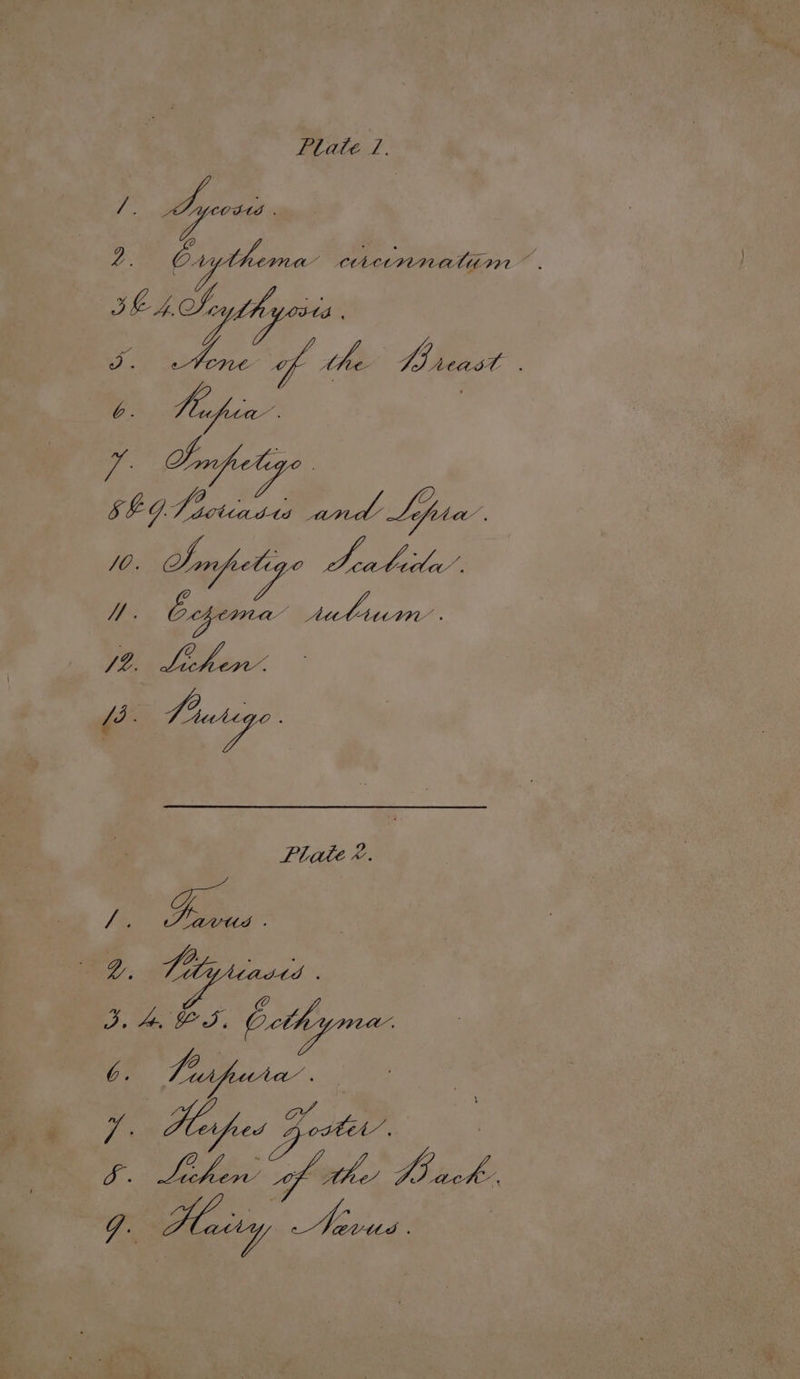 Plate 1.
1. Sycosis.
2. Erythema circinnatum.
3 & 4. Icythyosis.
5. Acne of the Breast.
6. Rupia.
7. Impetigo.
8 & 9. Psoriasis and Lepra.
10. Impetigo Scabida.
11. Eczema rubrum.
12. Lichen.
13. Prurigo.
Plate 2.
1. Favus.
2. Pityriasis.
3. 4. & 5. Ecthyma.
6. Purpura.
7. Herpes Zoster.
8. Lichen of the Back.
9. Hairy Nævus.